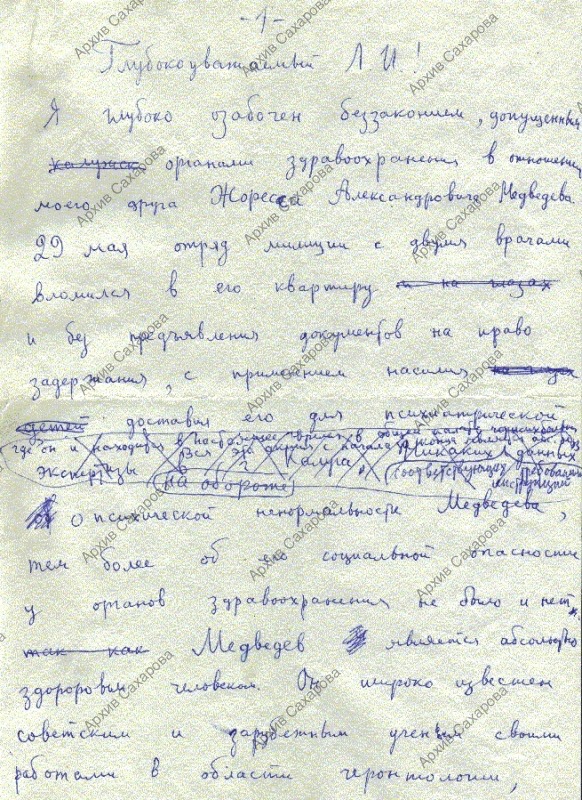 -1-
Глубокоуважаемый Л И!
Я глубоко озабочен беззаконием, допущенным
калужск органами здравоохранения в отношении
моего друга Жореса Александровича Медведева.
29 мая отряд милиции с двумя врачами
вломился в его квартиру и на глазах
и без предъявления документов на право
задержания, с применением насилия
детей доставил его для психиатрической
где он и находится в настоящее время в общей палате психиатрич
экспертизы в г Калуга. Никаких данных
(на обороте) соответствующих требованиям инструкций
о психической ненормальности Медведева,
тем более об его социальной опасности
у органов здравоохранения не было и нет,
так как Медведев является абсолютно
здоровым человеком. Он широко известен
советским и зарубежным ученым своими
работами в области геронтологии,
Архив Сахарова